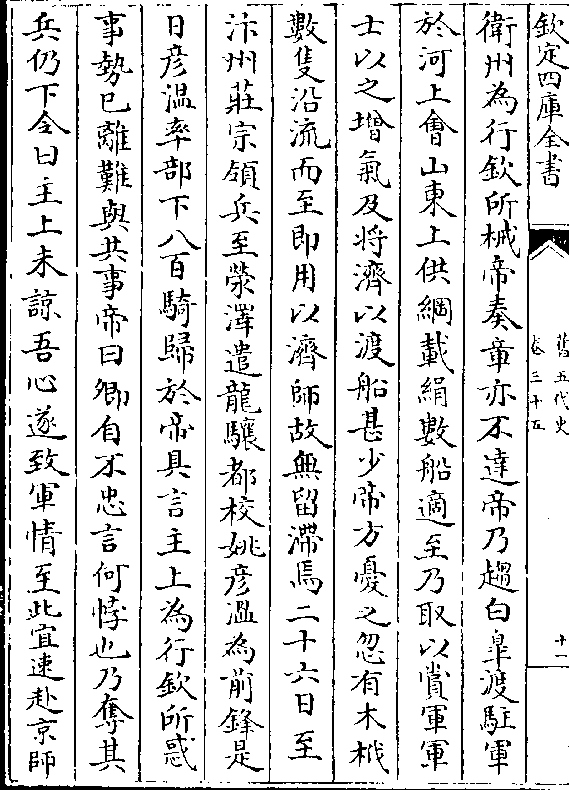 欽定四庫全書
舊五代史
卷三十五
十一
衛州為行欽所械帝奏章亦不達帝乃趨白臯渡駐軍
於河上會山東上供綱載絹數船適至乃取以賞軍軍
士以之增氣及將濟以渡船甚少帝方憂之忽有木栰
數隻沿流而至即用以濟師故無留滯焉二十六日至
汴州莊宗領兵至滎澤遣龍驤都校姚彦温為前鋒是
日彦温率部下八百騎歸於帝具言主上為行欽所惑
事勢已離難與共事帝曰卿自不忠言何悖也乃奪其
兵仍下令曰主上未諒吾心遂致軍情至此宜速赴京師